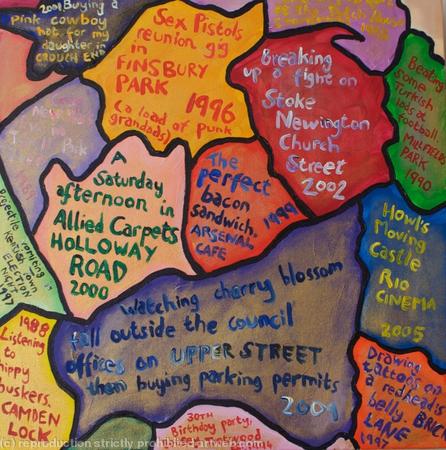 2001 Buying a
pink cowboy
hat for my
daughter in
CROUCH END
Sex Pistols
reunion gig
in
FINSBURY
PARK 1996
(a load of punk
grandads)
Breaking
up a fight on
Stoke
Newington
Church
Street
2002
Beating
some
Turkish
lads at
football
HIGHBURY FIELDS
1990
A
Saturday
afternoon in
Allied Carpets
HOLLOWAY
ROAD
2000
The
perfect
bacon
sandwich.
ARSENAL
CAFE
1999
Howl's
Moving
Castle
RIO
CINEMA
2005
Watching cherry blossom
fall outside the council
offices on UPPER STREET
then buying parking permits
2001
1988
Listening
to
hippy
buskers.
CAMDEN
LOCK
Drawing
tattoos on
a redhead's
belly. BRICK
LANE
1997
30TH
Birthday party,
(c) reproduction strictly prohibited artweb.com